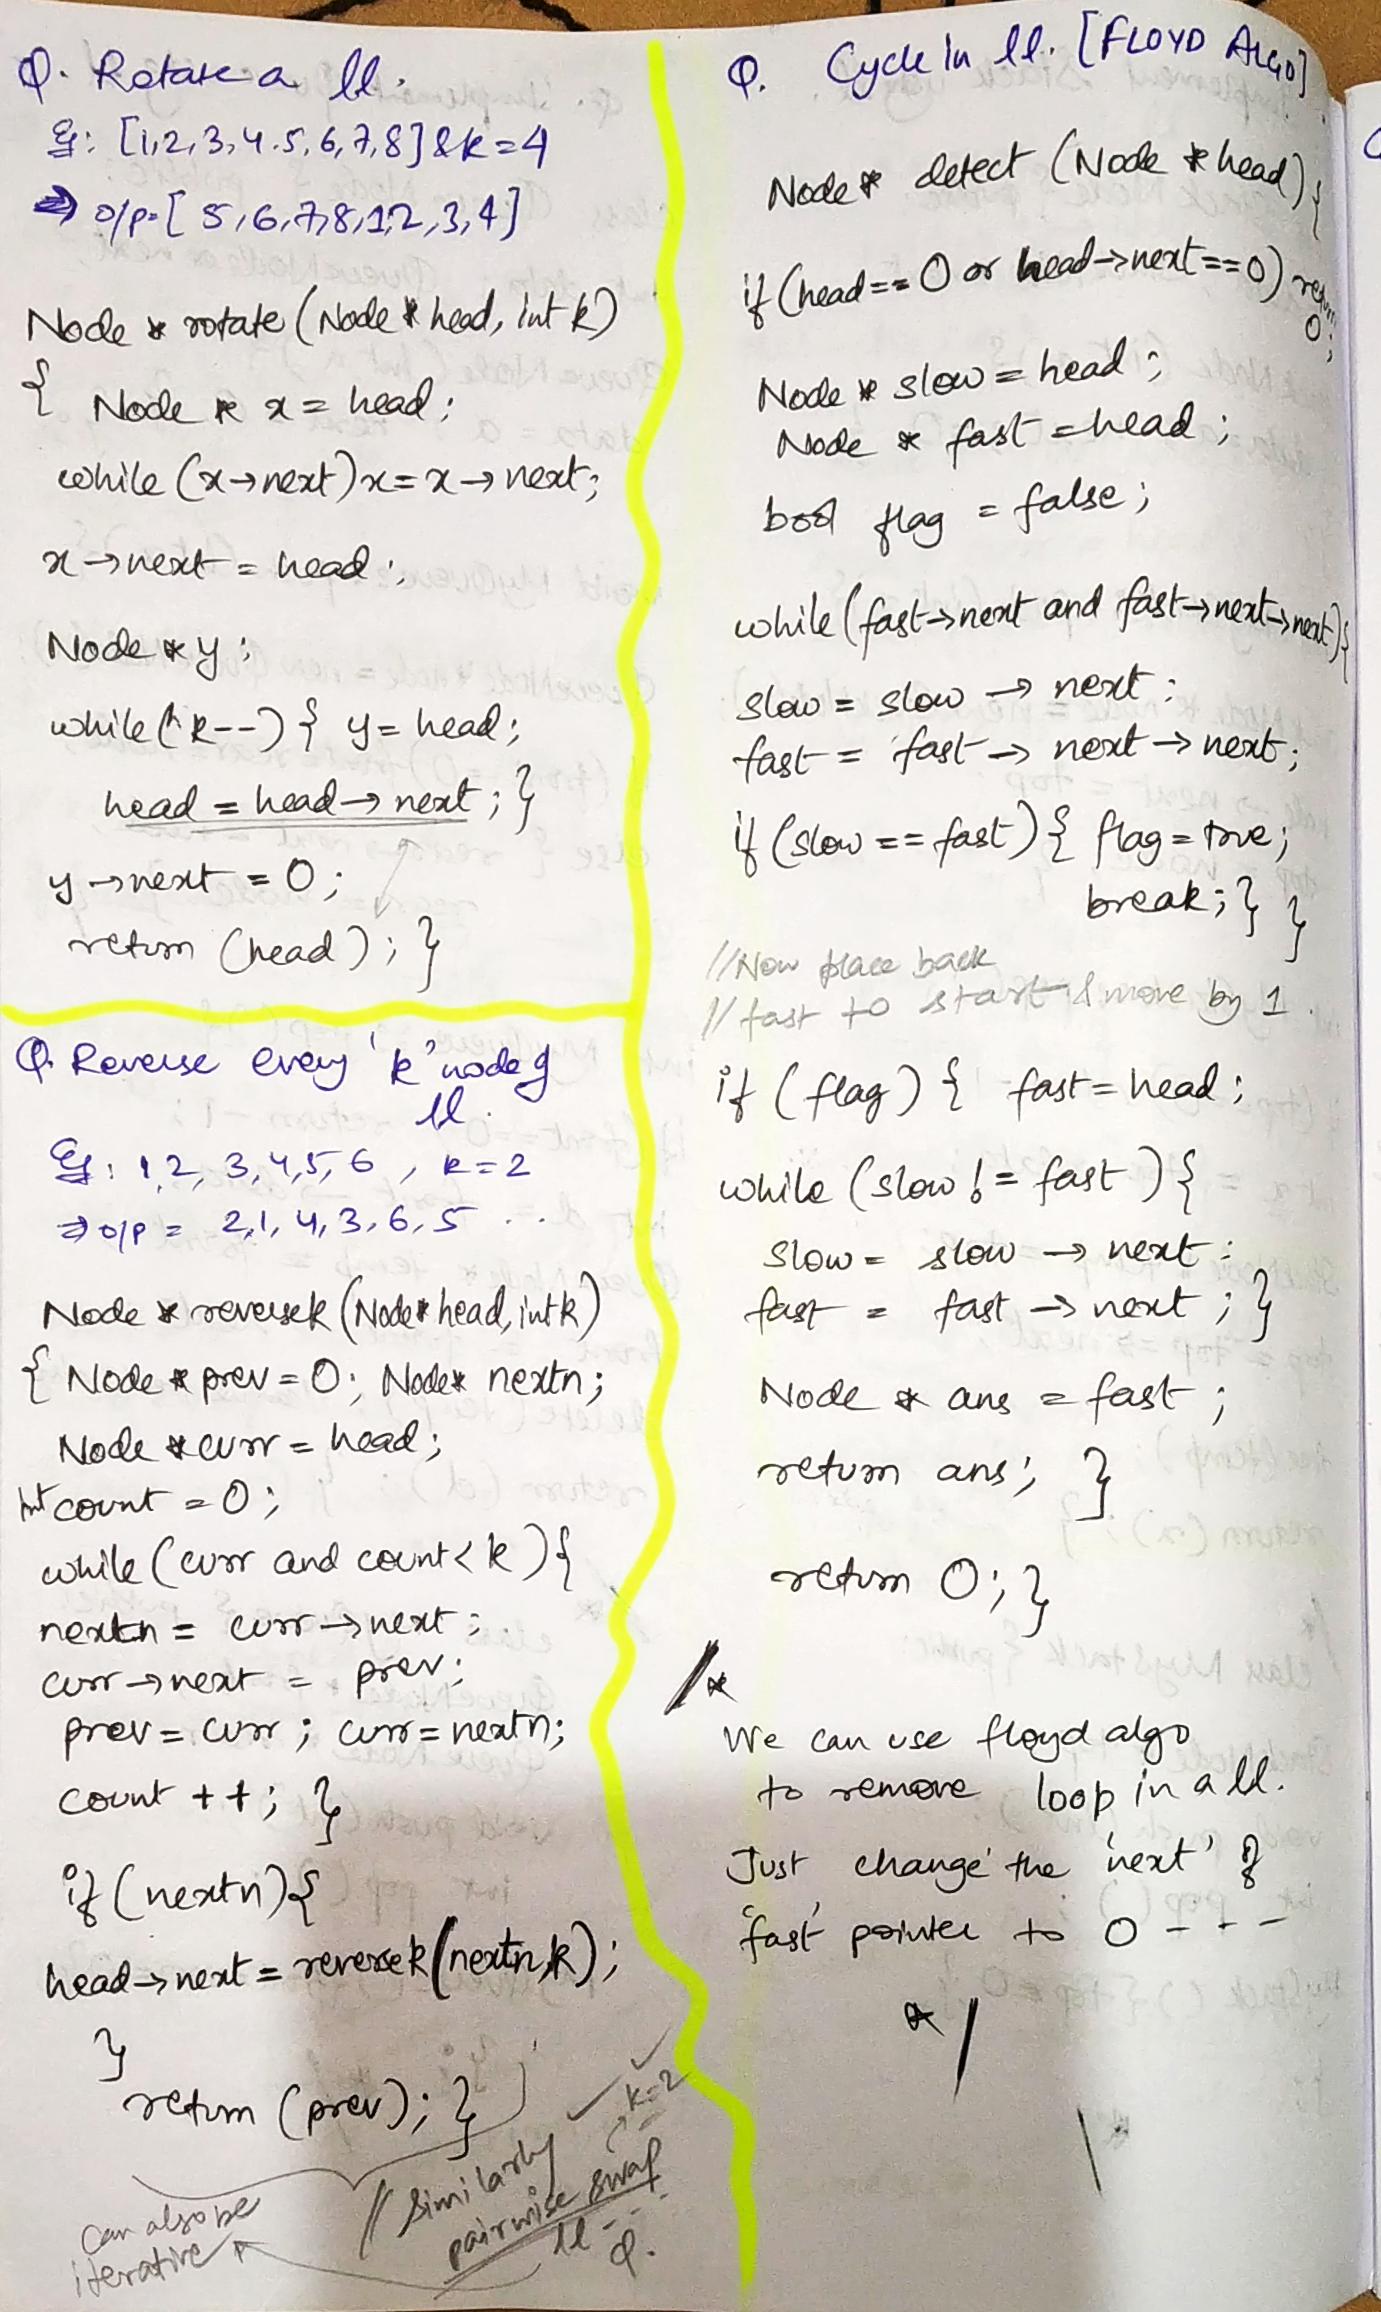 Q. Rotate a ll.
Eg: [1,2,3,4.5,6,7,8] & k=4
⇒ o/p=[ 5,6,7,8,1,2,3,4]
Node * rotate (Node * head, int k)
{ Node * x = head;
while (x→next) x = x → next;
x → next = head;
Node * y;
while (k--) { y = head;
head = head → next; }
y → next = 0;
return (head); }
Q. Reverse every 'k' node of
ll.
Eg: 1,2, 3,4,5,6 , k=2
⇒ o/p = 2,1, 4,3,6,5 ..
Node * reversek (Node* head, int k)
{ Node * prev = 0; Node* nextn;
Node * curr = head;
int count = 0;
while (curr and count < k ) {
nextn = curr → next;
curr → next = prev;
prev = curr ; curr = nextn;
count ++; }
if (nextn) {
head → next = reversek (nextn,k);
}
return (prev); }
can also be
iterative
// Similarly
pairwise swap
k=2
ll
Q.
Q. Cycle in ll. [FLOYD ALGO]
Node * detect (Node * head) {
if (head == 0 or head → next == 0) return
0;
Node * slow = head;
Node * fast = head;
bool flag = false;
while (fast → next and fast → next → next) {
slow = slow → next;
fast = fast → next → next;
if (slow == fast) { flag = true;
break; } }
//Now place back
// fast to start & move by 1.
if ( flag ) { fast = head;
while (slow != fast ) {
slow = slow → next;
fast = fast → next ; }
Node * ans = fast ;
return ans; }
return 0; }
/*
We can use floyd algo
to remove loop in a ll.
Just change the 'next' of
'fast' pointer to 0 - - -
*/